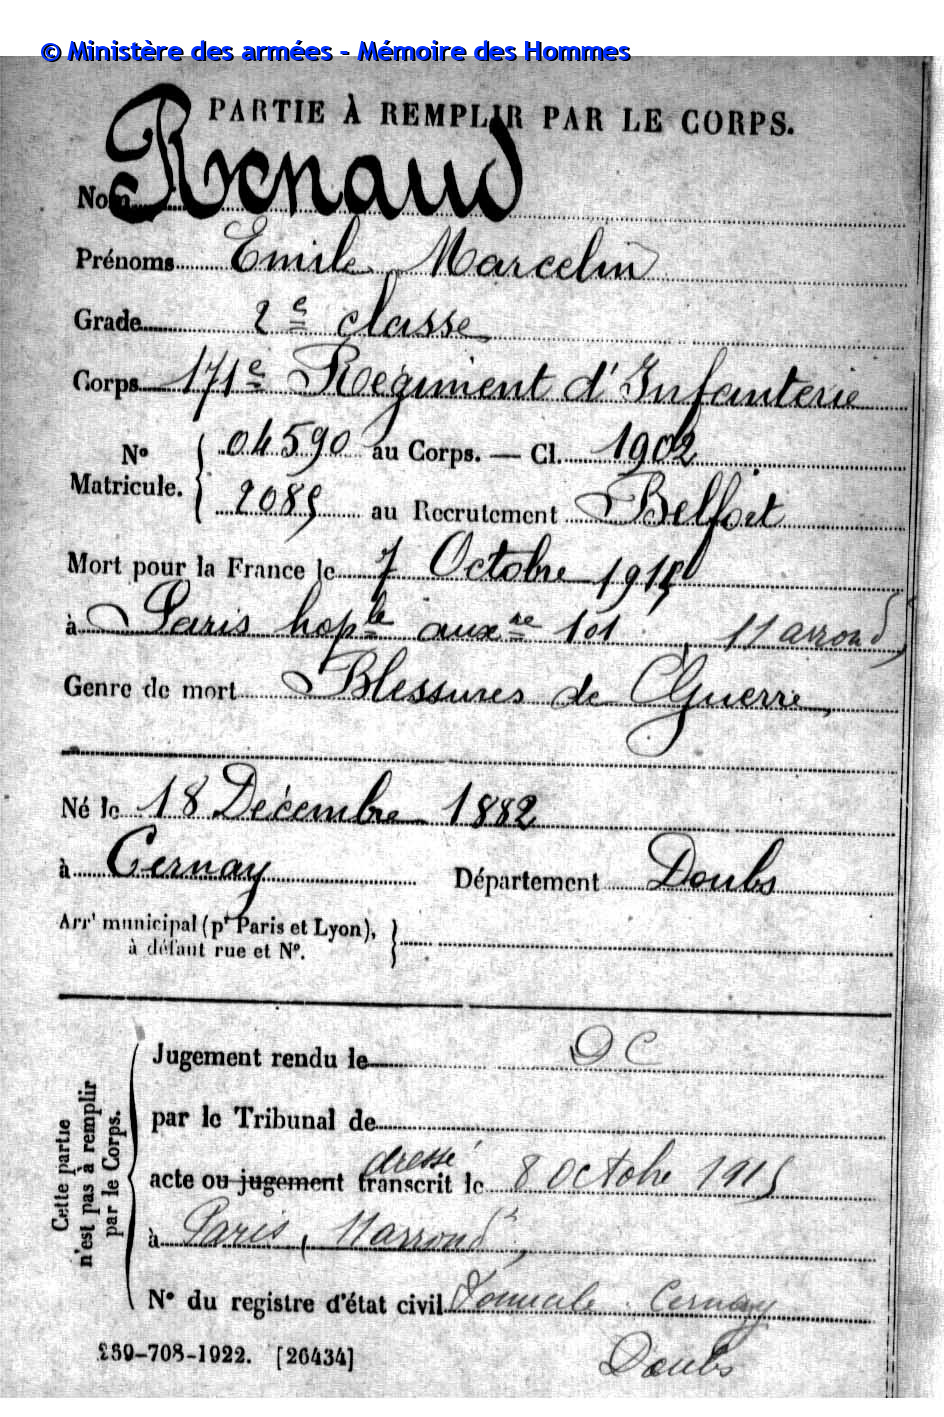 © Ministère des armées - Mémoire des Hommes
PARTIE À REMPLIR PAR LE CORPS.
Nom Renaud
Prénoms Emile Marcelin
Grade 2e classe
Corps 171e Régiment d'Infanterie
No Matricule. { 04590 au Corps. — Cl. 1902
2085 au Recrutement Belfort
Mort pour la France le 7 Octobre 1915
à Paris hople auxre 101, 11 arrond
Genre de mort Blessures de Guerre
Né le 18 Décembre 1882
à Cernay Département Doubs
Arrt municipal (pr Paris et Lyon),
à défaut rue et No.
Cette partie n'est pas à remplir par le Corps.
Jugement rendu le DC
par le Tribunal de
dressé
acte ou jugement transcrit le 8 octobre 1915
à Paris, 11 arrondt
No du registre d'état civil Cernay
Doubs
239-708-1922. [26434]